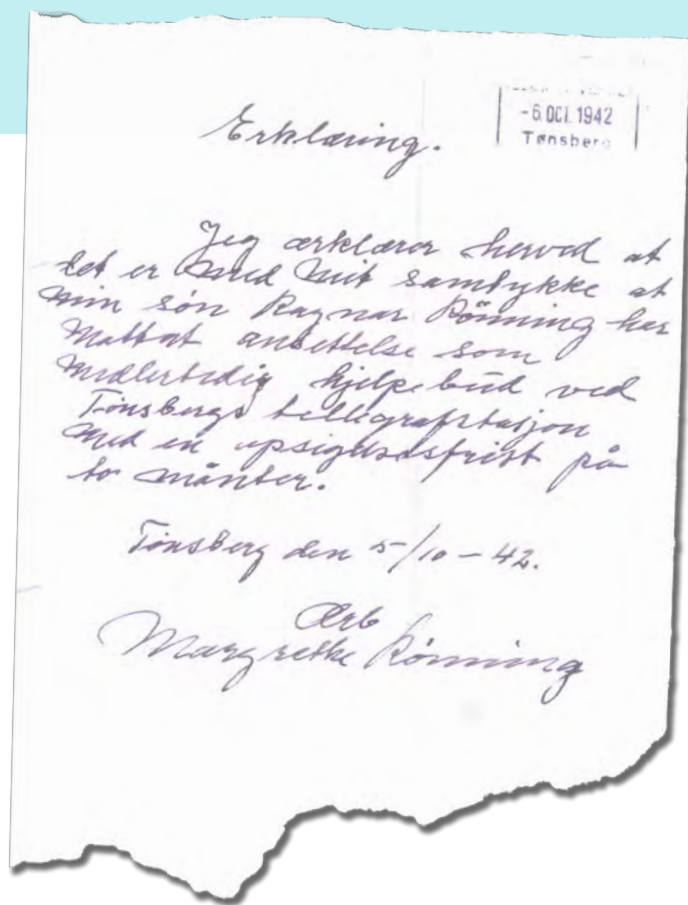 -6.OCT.1942
Tønsberg
Erklæring.
Jeg ærklærer herved at
det er med mit samtykke at
min søn Ragnar Rönning har
Mottat ansettelse som
midlertidig hjelpebud ved
Tönsbergs tellegrafstasjon
med en opsigelsesfrist på
to månter.
Tönsberg den 5/10-42.
Ærb
Margrethe Rönning